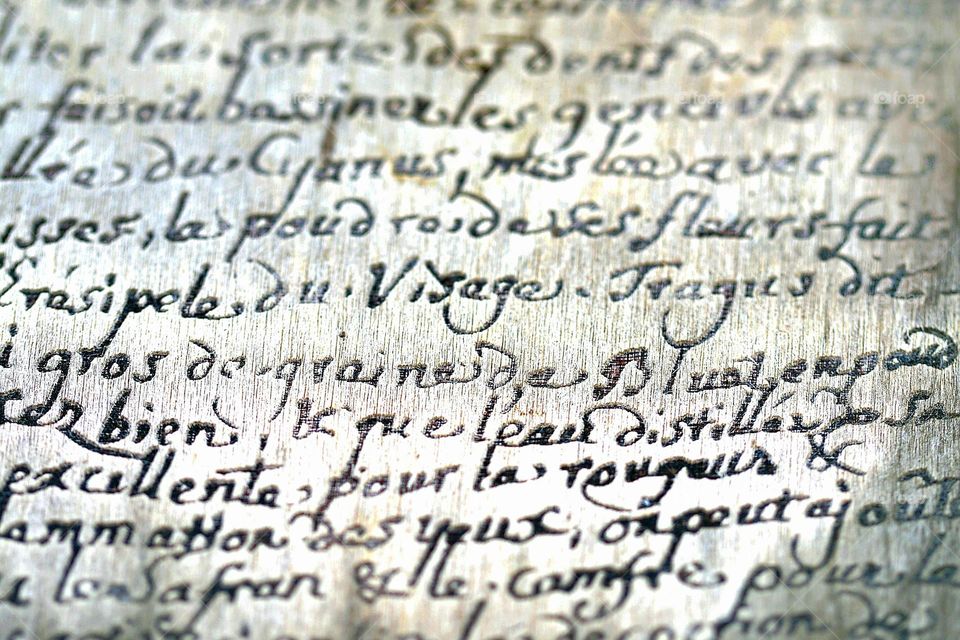 la sortie des dents des petits
faisoit bassiner les gencives au
llée du Cyanus, meslée avec le
isses, la poudre de ses fleurs fait
Erésipele du Visage. Tragus dit
gros de graine de Bluet en poud
bien, & que l'eau distillée de sa
excellente pour la rougeur &
ammation des yeux, on peut ajoute
le Safran & le Camfre pour la
des